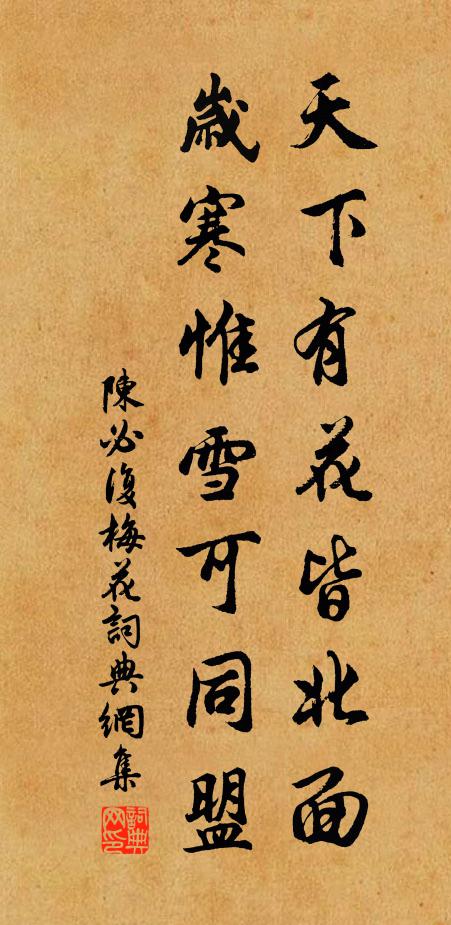 天下有花皆北面
歲寒惟雪可同盟
陳必復梅花詞典網集
詞典網印